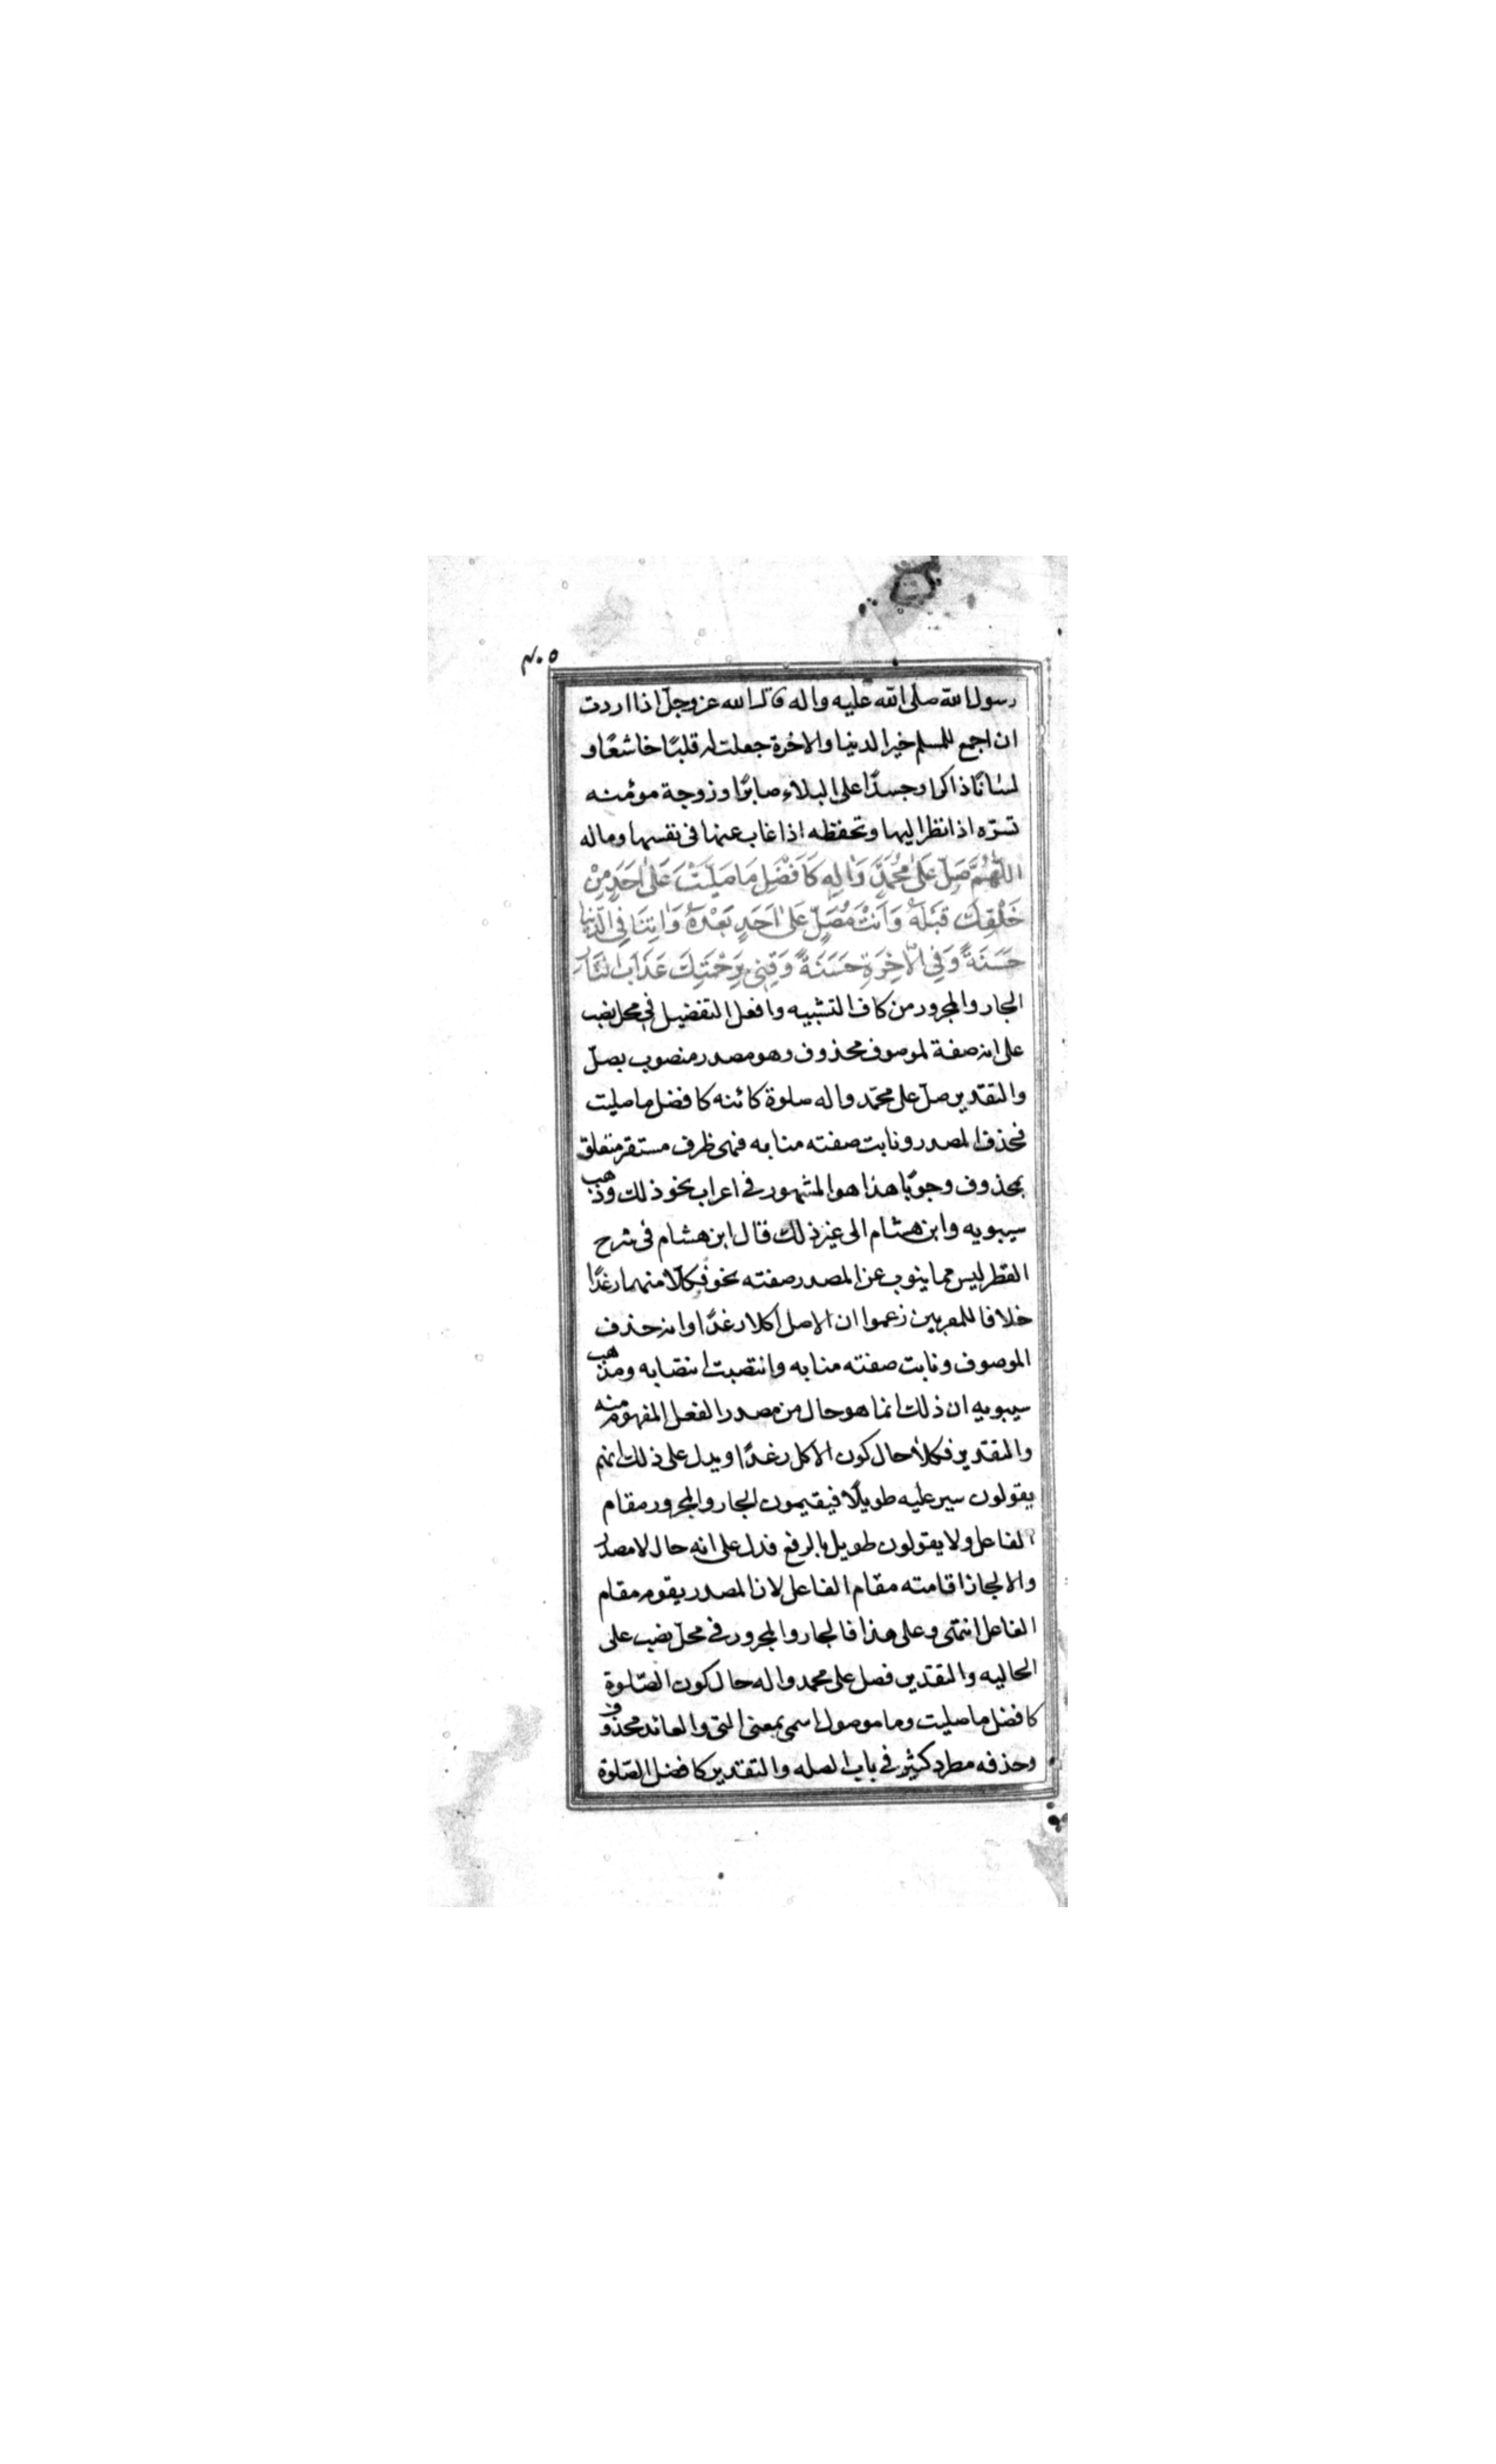 ٤٠٥
رسول الله صلى الله عليه واله قال الله عز وجل اذا اردت
ان اجمع للمسلم خير الدنيا والاخرة جعلت له قلبًا خاشعًا و
لسانًا ذاكرا وجسدًا على البلاء صابرًا وزوجة مومنه
تسرّه اذا نظر اليها وتحفظه اذا غاب عنها فى نفسها وماله
اَللّٰهُمَّ صَلِّ عَلىٰ مُحَمَّدٍ وَاٰلِهِ كَاَفْضَلِ مَا صَلَّيْتَ عَلىٰ اَحَدٍ مِنْ
خَلْقِكَ قَبْلَهُ وَاَنْتَ مُصَلٍّ عَلىٰ اَحَدٍ بَعْدَهُ وَاٰتِنَا فِي الدُّنْيا
حَسَنَةً وَفِي الْاٰخِرَةِ حَسَنَةً وَقِنِي بِرَحْمَتِكَ عَذَابَ النَّار
الجار والمجرور من كاف التشبيه وافعل التفضيل فى محل نصب
على انه صفة لموصوف محذوف وهو مصدر منصوب بصلّ
والتقدير صلّ على محمّد واله صلوة كائنه كافضل ما صليت
فحذف المصدر ونابت صفته منابه فهى ظرف مستقر متعلق
بمحذوف وجوبًا هذا هو المشهور فى اعراب نحو ذلك وذهب
سيبويه وابن هشام الى غير ذلك قال ابن هشام فى شرح
القطر ليس مما ينوب عن المصدر صفته نحو فكلا منها رغدًا
خلافا للمعربين زعموا ان الاصل اكلا رغدًا وانه حذف
الموصوف ونابت صفته منابه وانتصبت انتصابه ومذهب
سيبويه ان ذلك انما هو حال من مصدر الفعل المفهوم منه
والتقدير فكلا حال كون الاكل رغدًا ويدل على ذلك انهم
يقولون سير عليه طويلًا فيقيمون الجار والمجرور مقام
الفاعل ولا يقولون طويل بالرفع فدل على انه حال لا مصدر
والا لجاز اقامته مقام الفاعل لان المصدر يقوم مقام
الفاعل انتهى وعلى هذا فالجار والمجرور فى محلّ نصب على
الحاليه والتقدير فصل على محمد واله حال كون الصّلوة
كافضل ما صليت وما موصول اسمى بمعنى التى والعائد محذوف
وحذفه مطرد كثير فى باب الصله والتقدير كافضل الصّلوة